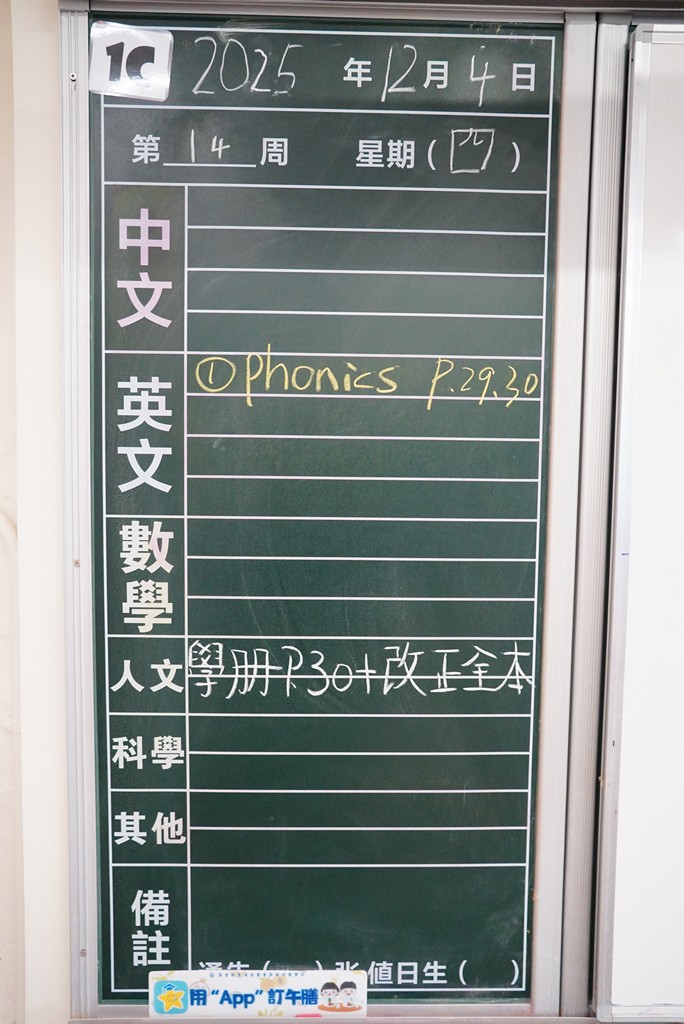 1C 2025 年 12 月 4 日
第 14 周 星期 ( 四 )
中文
英文 ① phonics P.29.30
數學
人文 學册 P.30+改正全本
科學
其他
備註
通告 ( ) 張 值日生 ( )
用 "App" 訂午膳